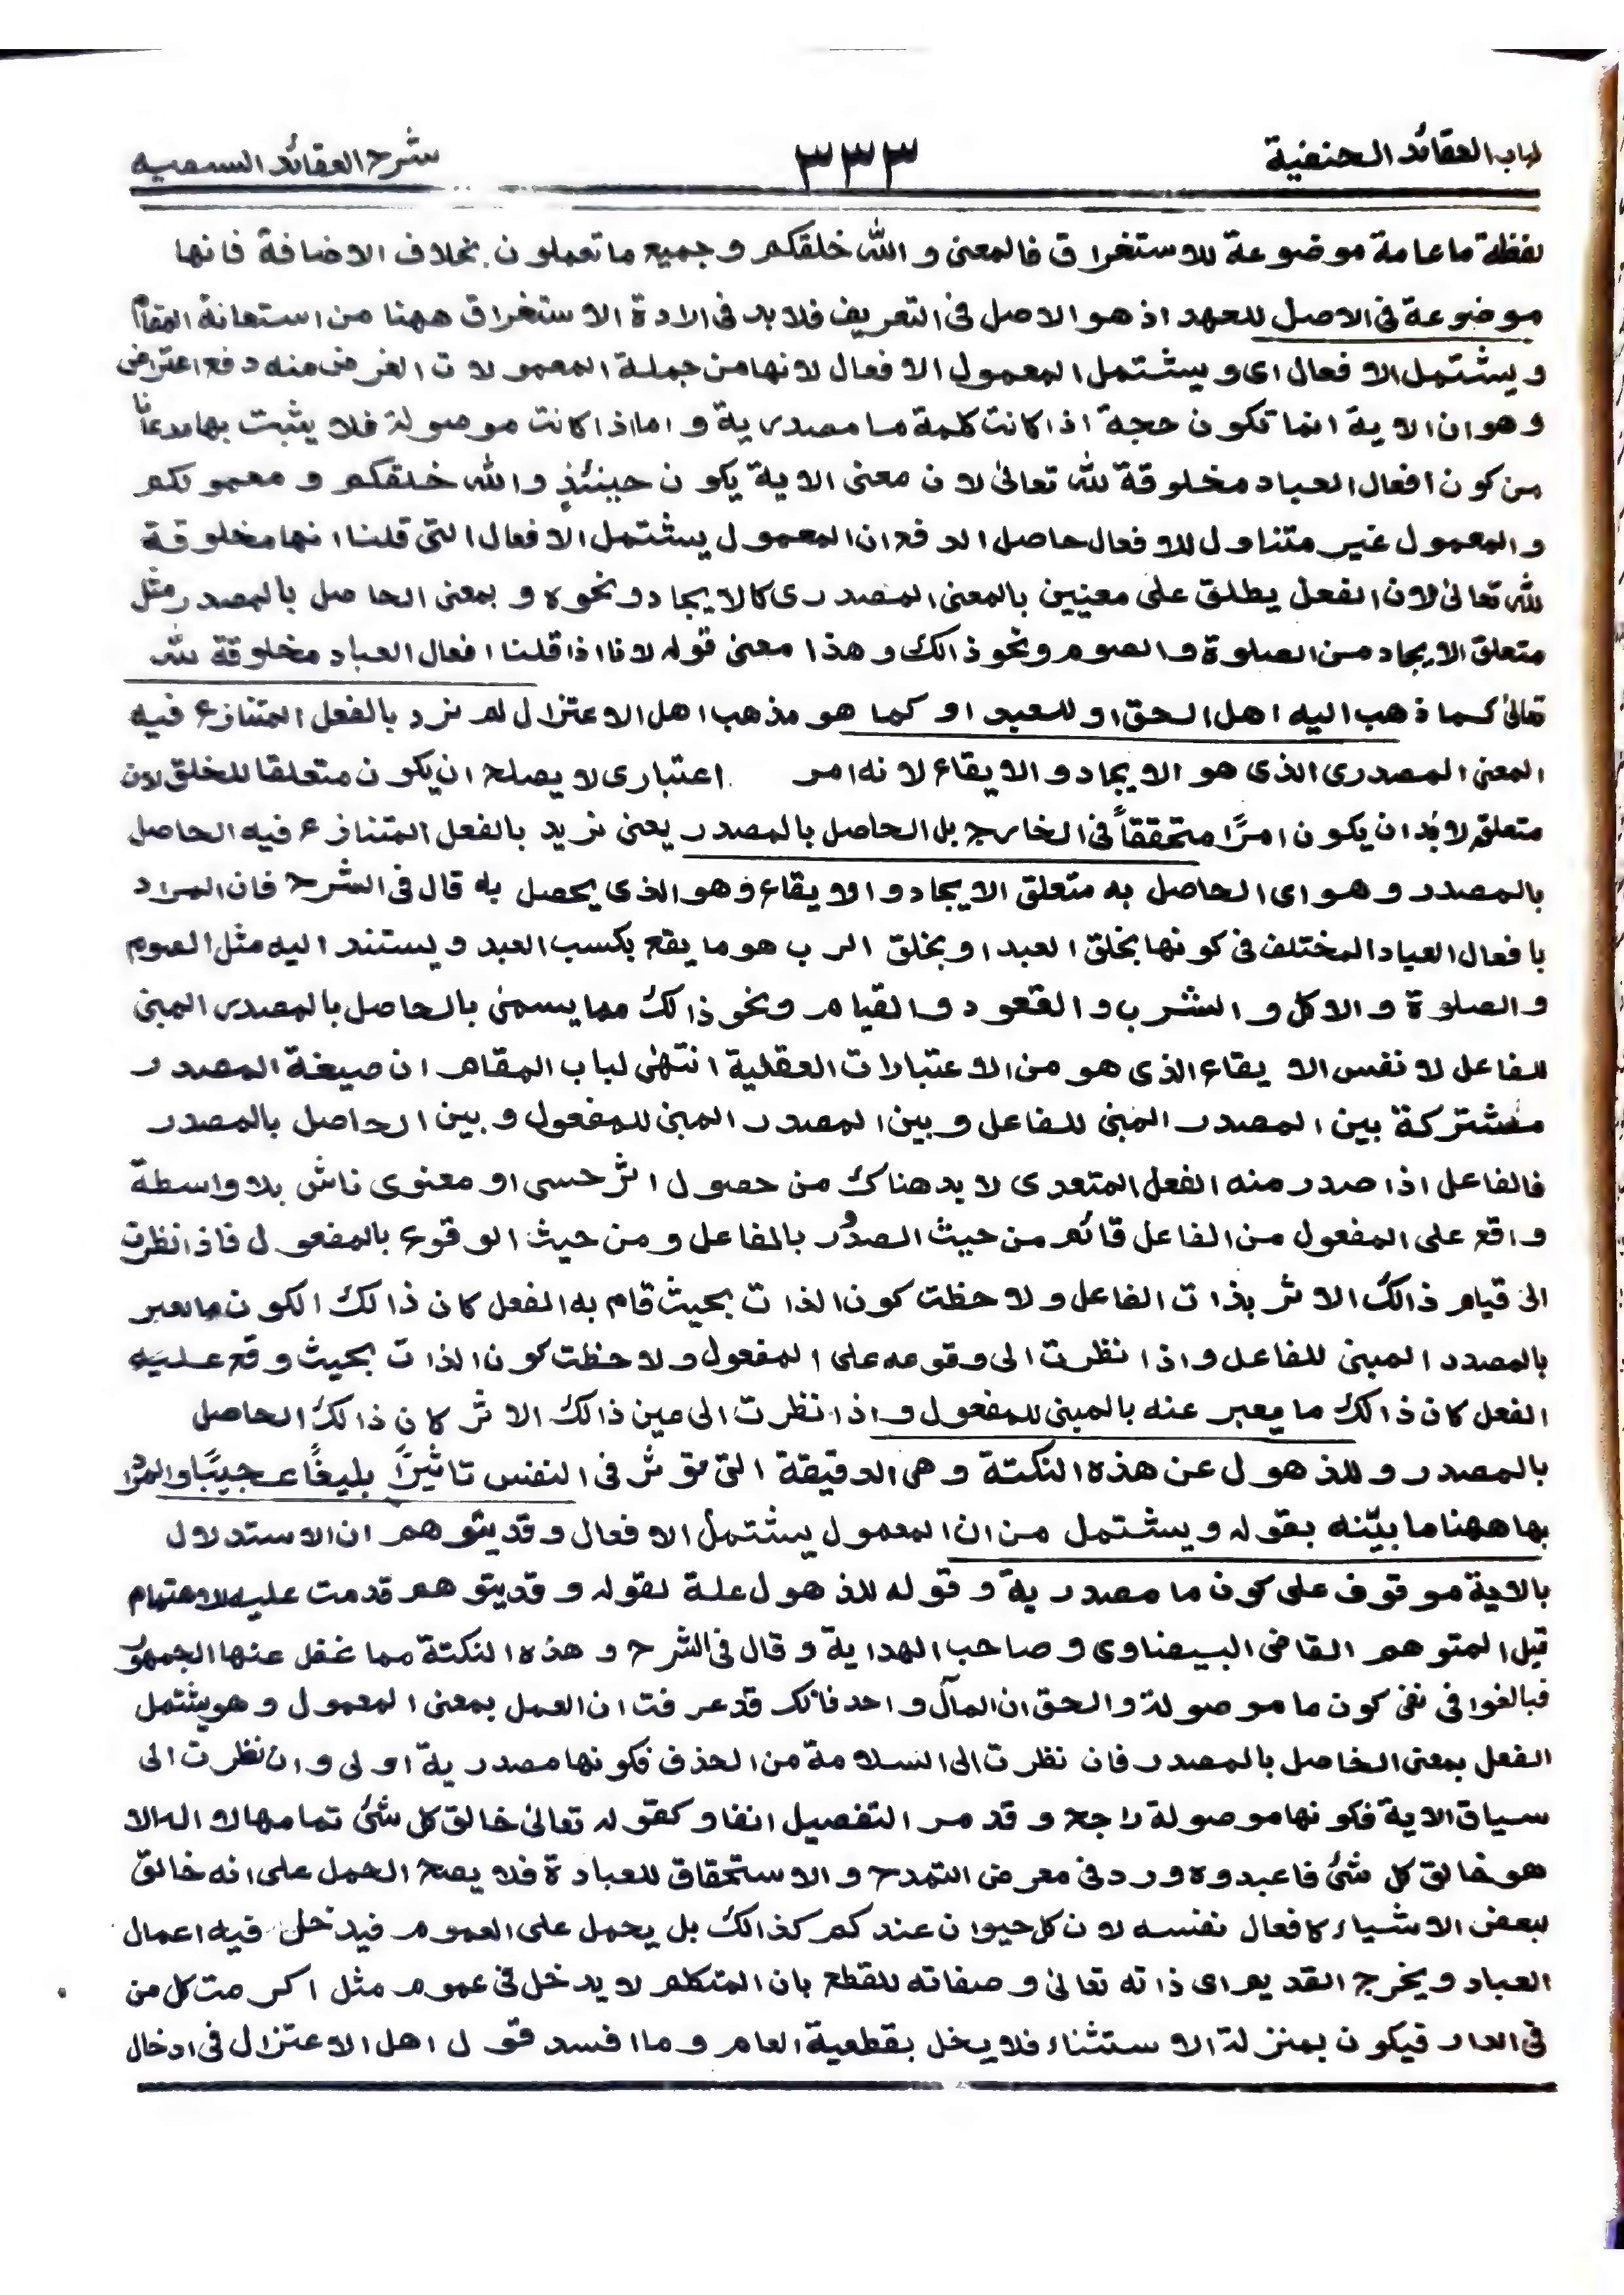 لباب العقائد الحنفية
٣٣٣
شرح العقائد السمعية
لفظة ما عامة موضوعة للاستغراق فالمعنى والله خلقكم وجميع ما تعملون بخلاف الاضافة فانها
موضوعة فى الاصل للعهد اذ هو الاصل فى التعريف فلا بد فى ارادة الاستغراق ههنا من استعانة المقام
ويشتمل الافعال اى ويشتمل المعمول الافعال لانها من جملة المعمولات الغرض منه دفع اعتراض
وهو ان الاية انما تكون حجة اذا كانت كلمة ما مصدرية واما اذا كانت موصولة فلا يثبت بها مدعانا
من كون افعال العباد مخلوقة لله تعالى لان معنى الاية يكون حينئذٍ والله خلقكم و معمولكم
والمعمول غير متناول للافعال حاصل الدفع ان المعمول يشتمل الافعال التى قلنا انها مخلوقة
لله تعالى لان الفعل يطلق على معنيين بالمعنى المصدرى كالايجاد ونحوه و بمعنى الحاصل بالمصدر مثل
متعلق الايجاد من الصلوة والصوم ونحو ذالك وهذا معنى قوله لانا اذا قلنا افعال العباد مخلوقة لله
تعالى كما ذهب اليه اهل الحق او للعبد او كما هو مذهب اهل الاعتزال لم نرد بالفعل المتنازع فيه
المعنى المصدرى الذى هو الايجاد والايقاع لانه امر اعتبارى لا يصلح ان يكون متعلقا للخلق لان
متعلقه لابُد ان يكون امرًا متحققاً فى الخارج بل الحاصل بالمصدر يعنى نريد بالفعل المتنازع فيه الحاصل
بالمصدر وهو اى الحاصل به متعلق الايجاد والايقاع وهو الذى يحصل به قال فى الشرح فان المراد
بافعال العباد المختلف فى كونها بخلق العبد او بخلق الرب هو ما يقع بكسب العبد ويستند اليه مثل الصوم
والصلوة والاكل والشرب والقعود والقيام ونحو ذالك مما يسمى بالحاصل بالمصدر المبنى
للفاعل لا نفس الايقاع الذى هو من الاعتبارات العقلية انتهٰى لباب المقام ان صيغة المصدر
مشتركة بين المصدر المبنى للفاعل وبين المصدر المبنى للمفعول و بين الحاصل بالمصدر
فالفاعل اذا صدر منه الفعل المتعدى لا بد هناك من حصول اثر حسى او معنوى ناش بلا واسطة
واقع على المفعول من الفاعل قائم من حيث الصدور بالفاعل ومن حيث الوقوع بالمفعول فاذا نظرت
الى قيام ذالك الاثر بذات الفاعل ولاحظت كون الذات بحيث قام به الفعل كان ذالك الكون ما يعبر
بالمصدر المبنى للفاعل واذا نظرت الى وقوعه على المفعول ولاحظت كون الذات بحيث وقع عليه
الفعل كان ذالك ما يعبر عنه بالمبنى للمفعول واذا نظرت الى عين ذالك الاثر كان ذالك الحاصل
بالمصدر وللذهول عن هذه النكتة وهى الدقيقة التى تؤثر فى النفس تاثيرًا بليغًا عجيبًا والمراد
بها ههنا ما بيّنه بقوله ويشتمل من ان المعمول يشتمل الافعال وقد يتوهم ان الاستدلال
بالاية موقوف على كون ما مصدرية وقوله للذهول علة لقوله وقد يتوهم قدمت عليه للاهتمام
قيل المتوهم القاضى البيضاوى وصاحب الهداية وقال فى الشرح وهذه النكتة مما غفل عنها الجمهور
فبالغوا فى نفى كون ما موصولة والحق ان المآل واحد فانك قد عرفت ان العمل بمعنى المعمول وهو يشتمل
الفعل بمعنى الحاصل بالمصدر فان نظرت الى السلامة من الحذف فكونها مصدرية اولى وان نظرت الى
سياق الاية فكونها موصولة راجح وقد مر التفصيل انفا وكقوله تعالى خالق كل شئ تمامها لا اله الا
هو خالق كل شئ فاعبدوه ورد فى معرض التمدح والاستحقاق للعبادة فلا يصح الحمل على انه خالق
لبعض الاشياء كافعال نفسه لان كل حيوان عندكم كذالك بل يحمل على العموم فيدخل فيه اعمال
العباد ويخرج القديم اى ذاته تعالى وصفاته للقطع بان المتكلم لا يدخل فى عموم مثل اكرمت كل من
فى الدار فيكون بمنزلة الاستثناء فلا يخل بقطعية العام وما افسد قول اهل الاعتزال فى ادخال